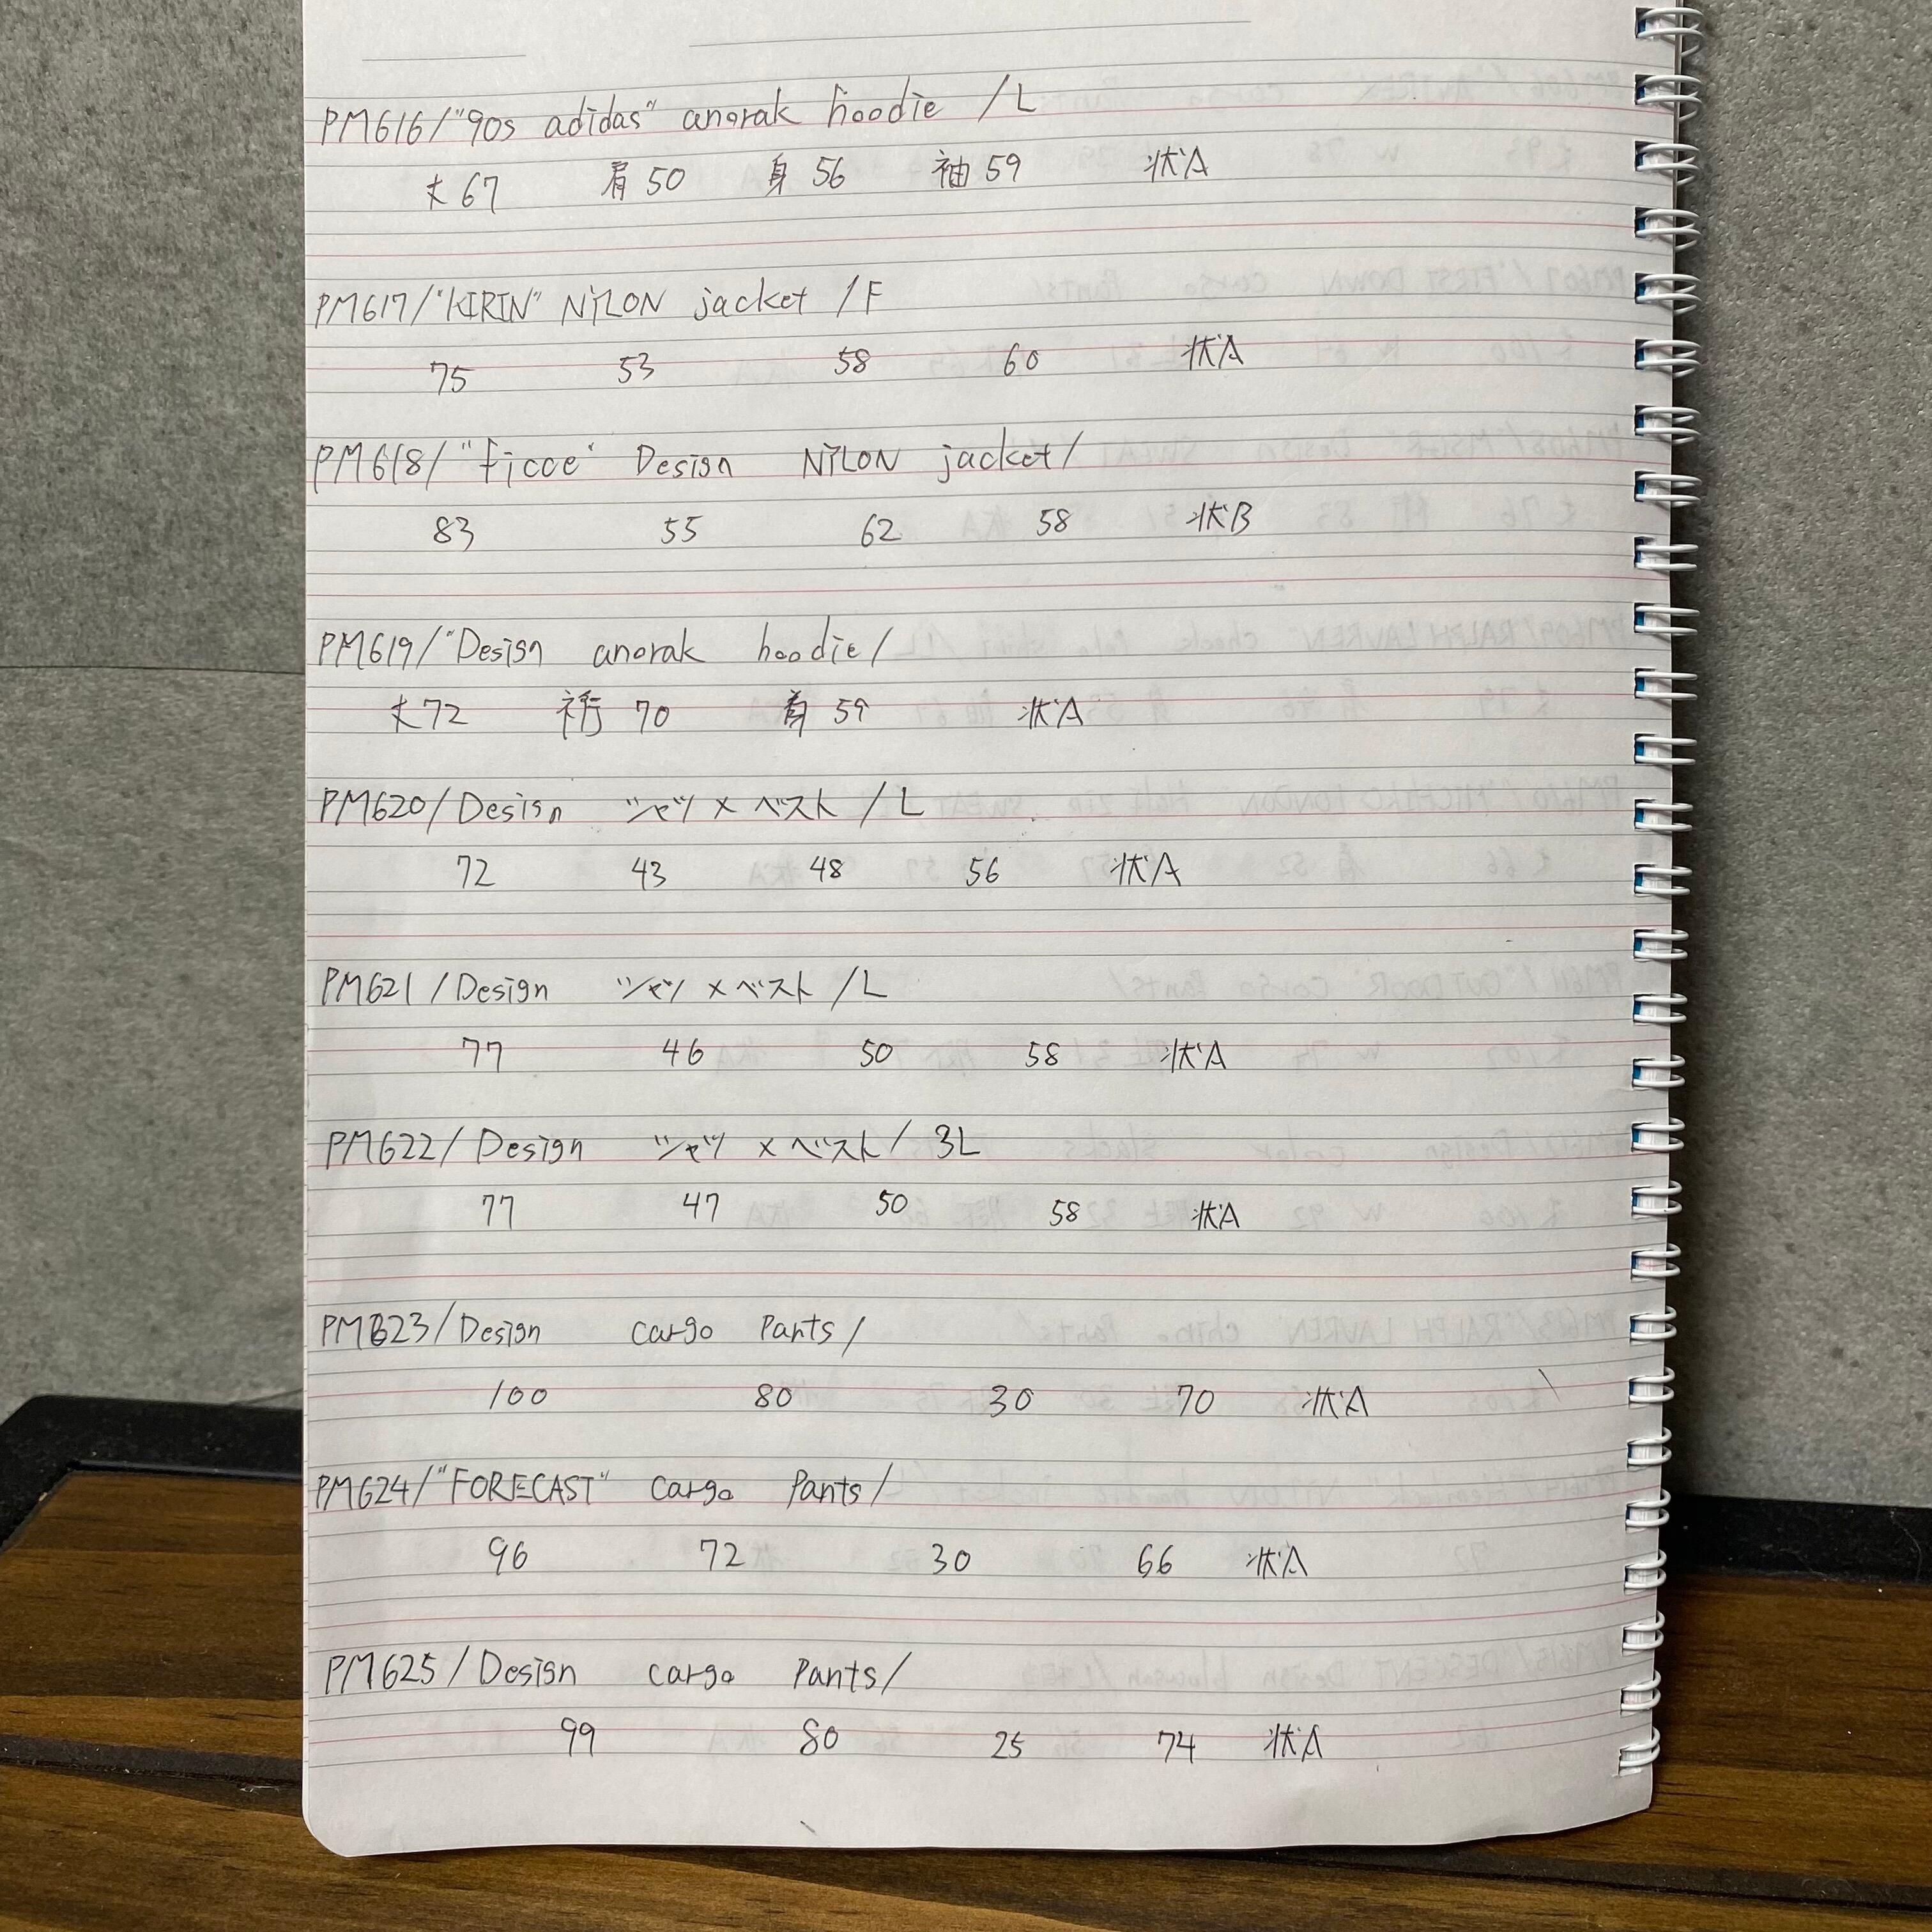 PM616/"90s adidas" anorak hoodie /L
丈67 肩50 身56 袖59 状A
PM617/"KIRIN" NYLON jacket /F
75 53 58 60 状A
PM618/"ficce" Design NYLON jacket/
83 55 62 58 状B
PM619/"Design anorak hoodie/
丈72 裄70 身59 状A
PM620/Design シャツ×ベスト/L
72 43 48 56 状A
PM621/Design シャツ×ベスト/L
77 46 50 58 状A
PM622/Design シャツ×ベスト/3L
77 47 50 58 状A
PM623/Design cargo Pants/
100 80 30 70 状A
PM624/"FORECAST" cargo Pants/
96 72 30 66 状A
PM625/Design cargo Pants/
99 80 25 74 状A